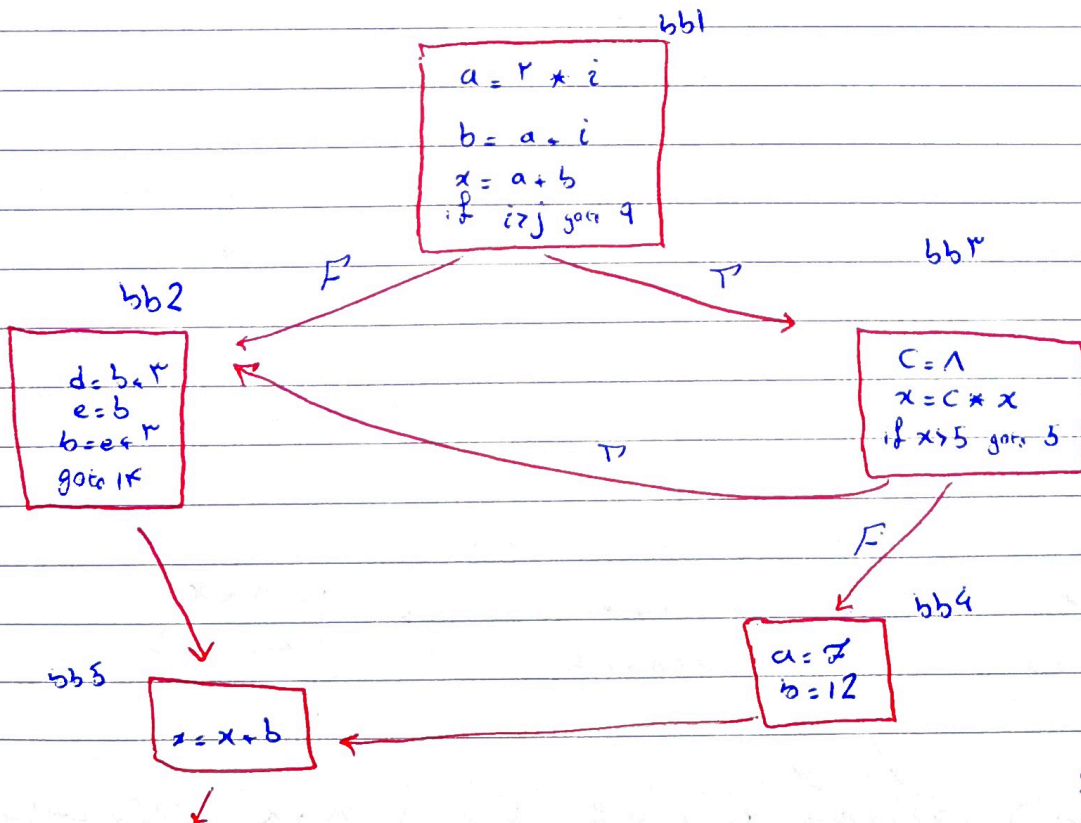 bb1
a = ۲ * i
b = a + i
x = a + b
if i>j goto 9
F
T
bb2
bb۳
d = b + ۳
e = b
b = e + ۳
goto 1۴
C = ۸
x = C * x
if x>5 goto 5
T
F
bb4
a = 7
b = 12
bb5
x = x + b